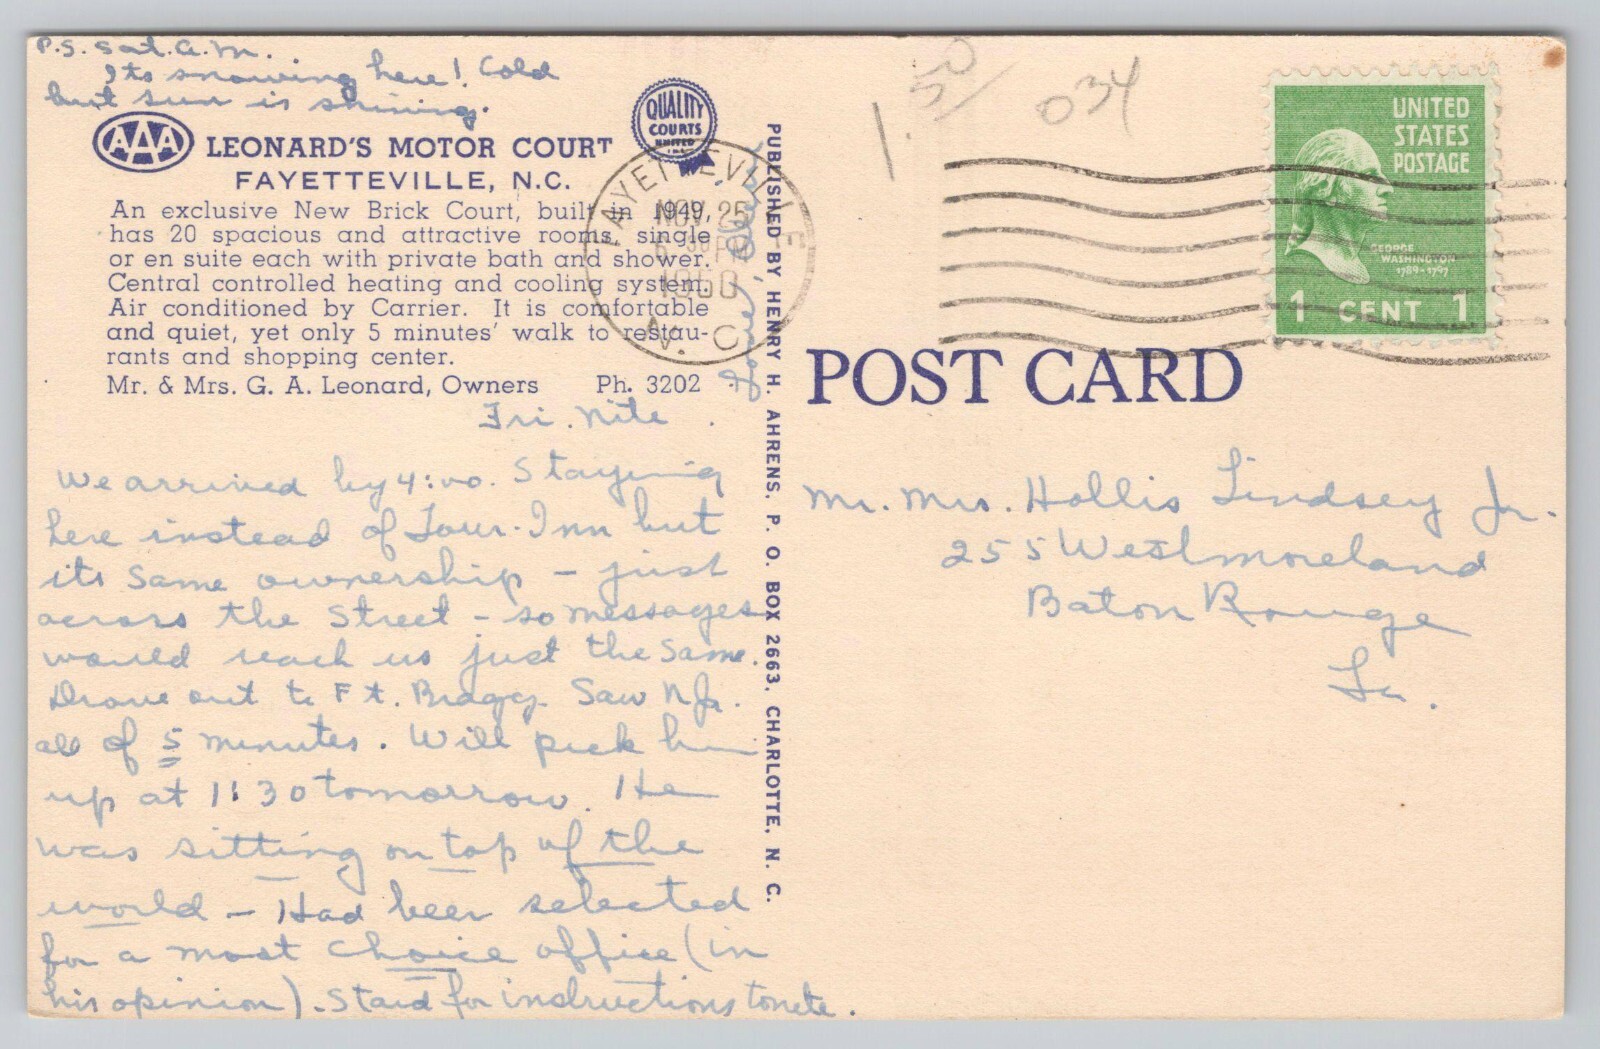 P.S. Sat. A.M.
Its snowing here! Cold
but sun is shining.
AAA
LEONARD'S MOTOR COURT
FAYETTEVILLE, N.C.
QUALITY
COURTS
UNITED
An exclusive New Brick Court, built in 1949,
has 20 spacious and attractive rooms, single
or en suite each with private bath and shower.
Central controlled heating and cooling system.
Air conditioned by Carrier. It is comfortable
and quiet, yet only 5 minutes' walk to restau-
rants and shopping center.
Mr. & Mrs. G. A. Leonard, Owners Ph. 3202
Fri. Nite
We arrived by 4:00. Staying
here instead of Tour-Inn but
its same ownership - just
across the Street - so messages
would reach us just the same.
Drove out to Ft. Bragg. Saw N Jr.
all of 5 minutes. Will pick him
up at 11:30 tomorrow. He
was sitting on top of the
world - Had been selected
for a most choice office (in
his opinion). Staid for instructions tonite.
Love,
PUBLISHED BY HENRY H. AHRENS, P. O. BOX 2663, CHARLOTTE, N. C.
FAYETTEVILLE
NOV 25
6 30 PM
1950
N. C.
1.50/
034
UNITED
STATES
POSTAGE
GEORGE
WASHINGTON
1789-1797
1 CENT 1
POST CARD
Mr. Mrs. Hollis Lindsey Jr.
255 Westmoreland
Baton Rouge
La.